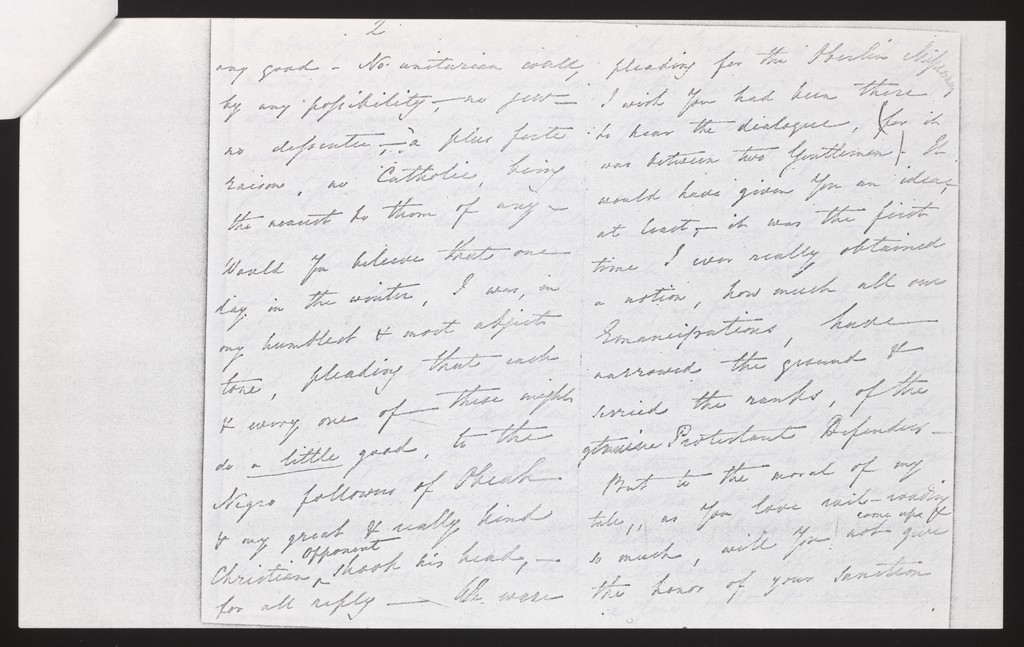 2
any good – No unitarian could,
by any possibility, – no Jew –
no dissenter, – à plus forte
raison, no Catholic, being
the nearest to them of any –
Would you believe that one
day in the winter, I was, in
my humblest & most abject
tone, pleading that each
& every one of these might
do a little good, to the
Negro followers of Obeah
& my great & really kind
Christian opponent shook his head, –
for all reply – We were
pleading for the Oberlin Missionary
I wish you had been there,
to hear the dialogue, (for it
was between two Gentlemen) It
would have given you an idea,
at least, – it was the first
time I ever really obtained
a notion, how much all our
Emancipations, have
narrowed the ground &
serried the ranks, of the
genuine Protestant Defenders –
But to the moral of my
tale, as you love rail-roading
so much, will you not come up & give
the honor of your sanction